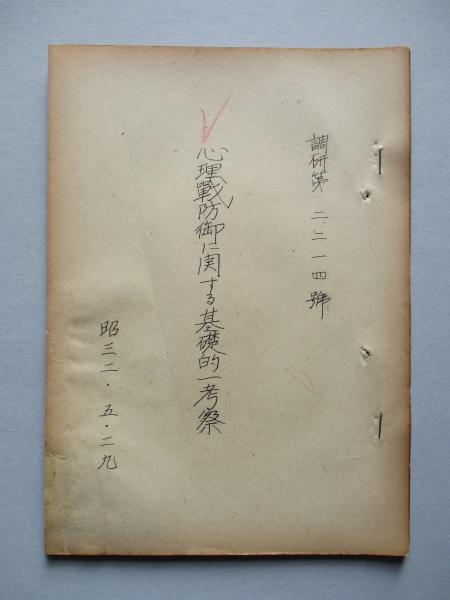 調研第二二一四號
心理戰防御に関する基礎的一考察
昭三二・五・二九